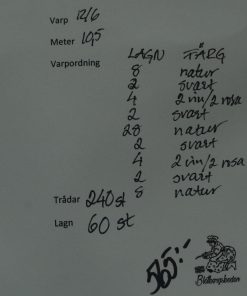 Varp 12/6
Meter 10,5
Varpordning LAGN FÄRG
8 natur
2 svart
4 2 vin/2 rosa
2 svart
28 natur
2 svart
4 2 vin/2 rosa
2 svart
8 natur
Trådar 240 st
Lagn 60 st
565:-